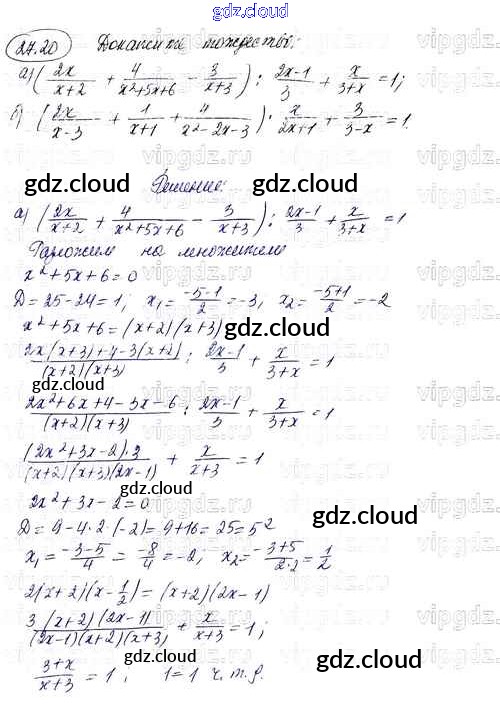 gdz.cloud
27.20 Докажите тождество:
а) (2x/(x+2) + 4/(x²+5x+6) - 3/(x+3)) : (2x-1)/3 + x/(3+x) = 1;
б) (2x/(x-3) + 1/(x+1) + 4/(x²-2x-3)) : x/(2x+1) + 3/(3-x) = 1.
Решение:
а) (2x/(x+2) + 4/(x²+5x+6) - 3/(x+3)) : (2x-1)/3 + x/(3+x) = 1
Разложим на множители
x²+5x+6=0
D=25-24=1; x₁=(-5-1)/2=-3, x₂=(-5+1)/2=-2
x²+5x+6=(x+2)(x+3)
(2x(x+3)+4-3(x+2))/((x+2)(x+3)) : (2x-1)/3 + x/(3+x) = 1
(2x²+6x+4-3x-6)/((x+2)(x+3)) : (2x-1)/3 + x/(3+x) = 1
((2x²+3x-2)·3)/((x+2)(x+3)(2x-1)) + x/(x+3) = 1
2x²+3x-2=0
D=9-4·2·(-2)=9+16=25=5²
x₁=(-3-5)/4=-8/4=-2; x₂=(-3+5)/(2·2)=1/2
2(x+2)(x-1/2)=(x+2)(2x-1)
(3(x+2)(2x-1))/((2x-1)(x+2)(x+3)) + x/(x+3) = 1;
(3+x)/(x+3) = 1; 1=1 ч.т.д.
gdz.cloud